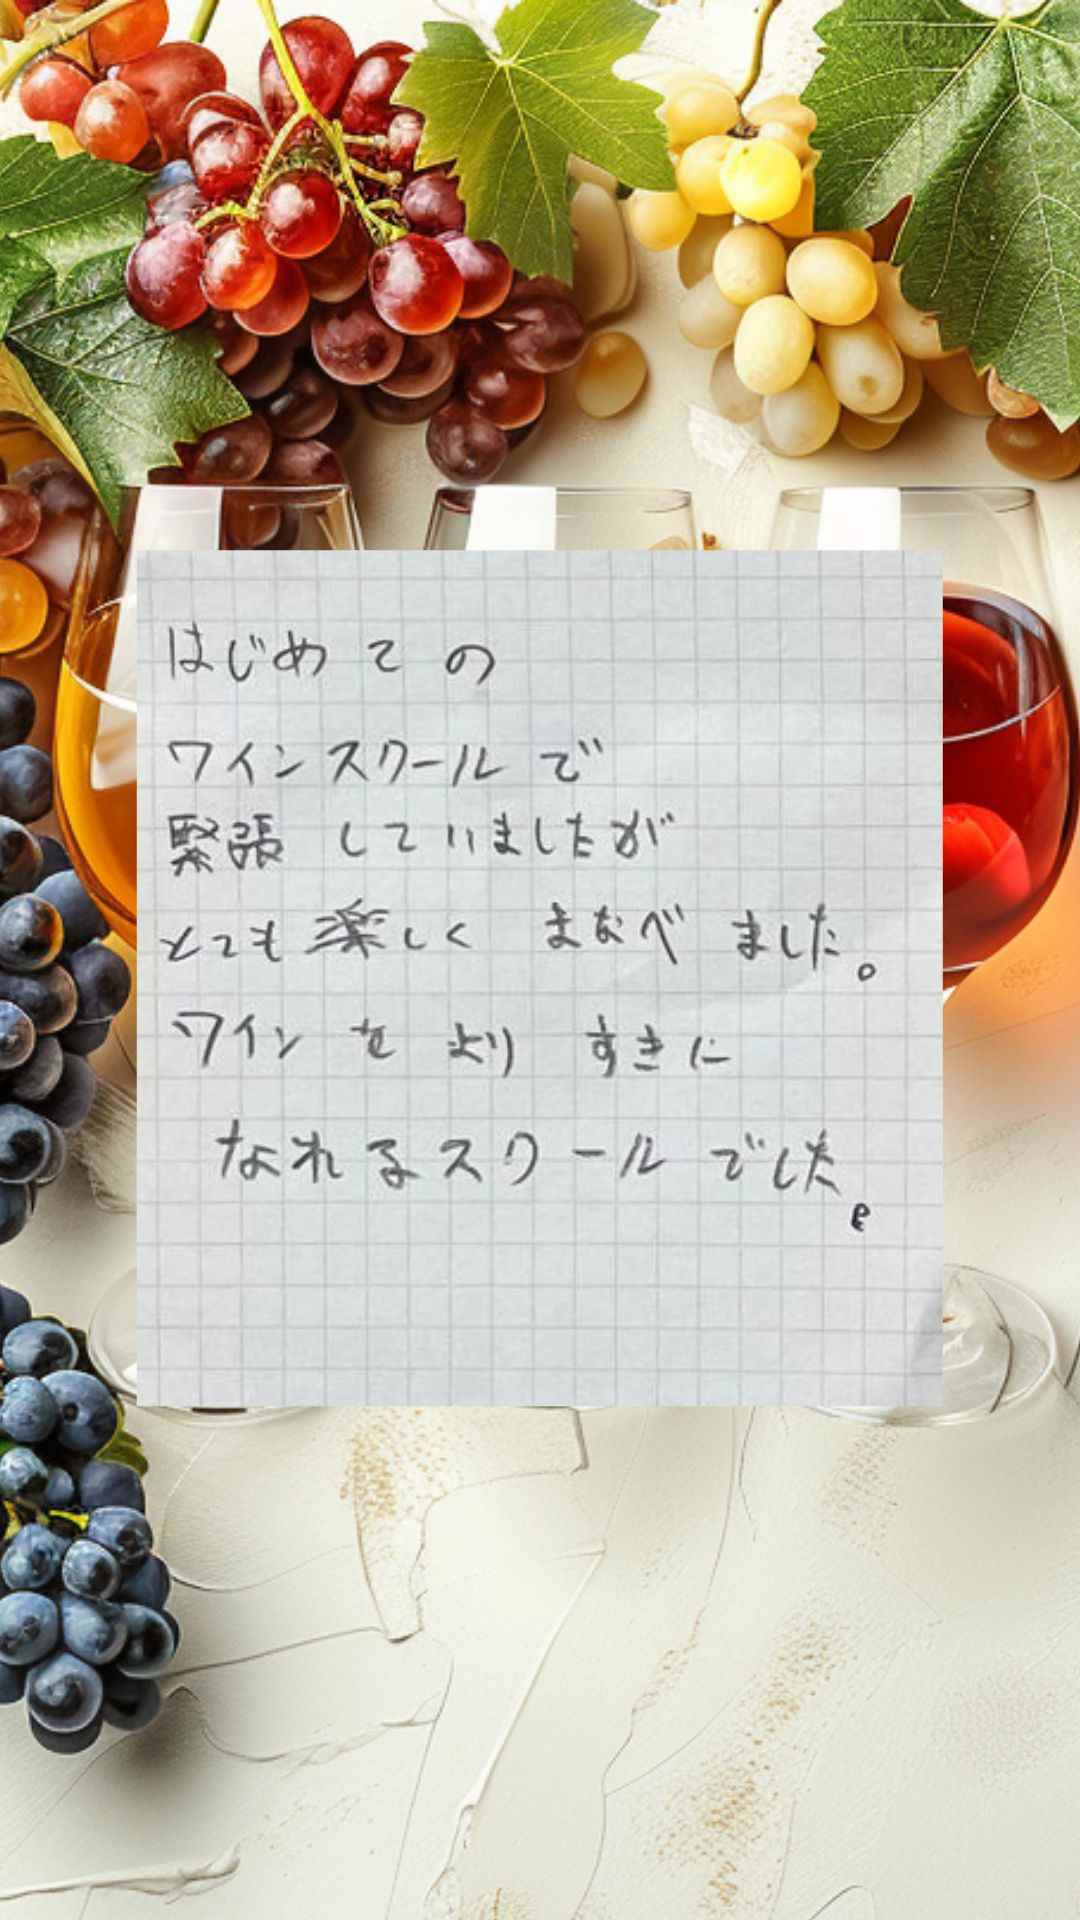 はじめての
ワインスクールで
緊張していましたが
とても楽しくまなべました。
ワインをよりすきに
なれるスクールでした。